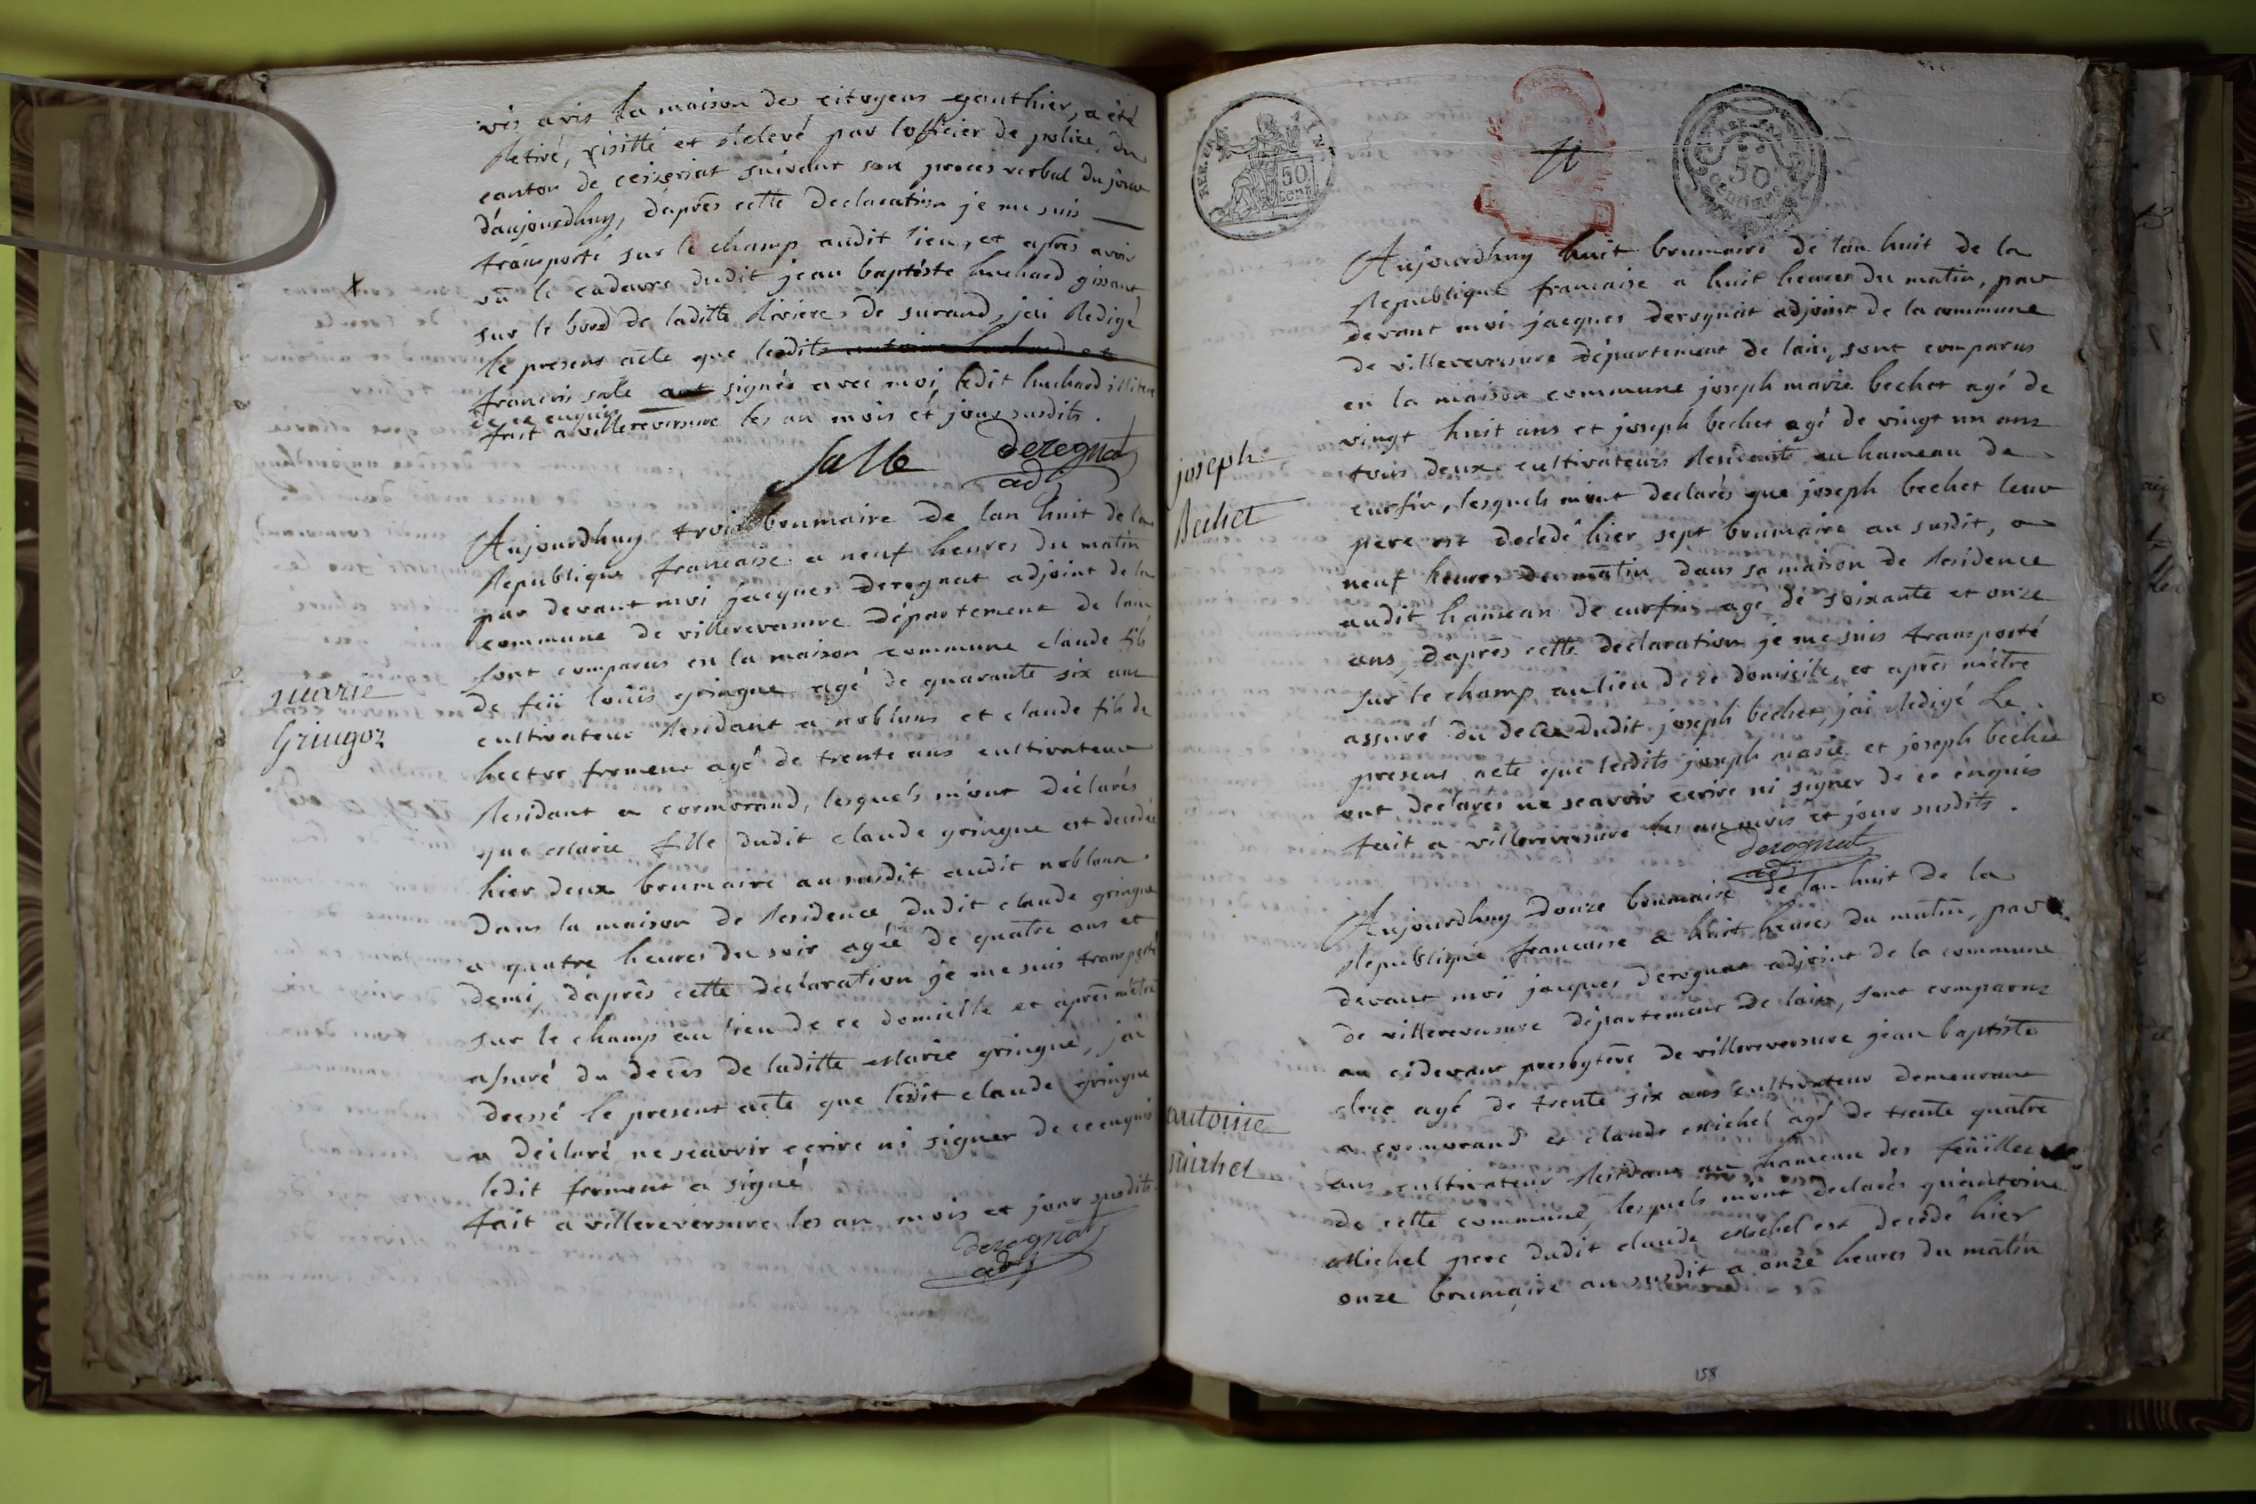 vis avis la maison des citoyens gauthier, a été
Retiré, visitté et Relevé par lofficier de police, du
canton de ceizeriat suivant son proces verbal du jour
d'aujourdhuy, d'aprês cette declaration je me suis
transporté sur le champ audit lieu, et aprês avoir
vû le cadavre dudit jean baptiste huchard gissant
sur le bord de laditte Riviere de surand, jai Redigé
le present acte que lesdits
francois salle signés avec moi, ledit huchard illitere
de ce enquis
fait a villereversure les an mois et jour susdits.
Salle derognat
adj
Aujourdhuy trois brumaire de lan huit de la
Republique francaise a neuf heures du matin
par devant moi jacques derognat adjoint de la
commune de villereversure département de lain
sont comparus en la maison commune claude fils
de feü loüis gringue agé de quarante six ans
cultivateur Residant a noblens et claude fils de
hector froment agé de trente ans cultivateur
Residant a cormorand, lesquels m'ont déclarés
que Marie fille dudit claude gringue est decedée
hier deux brumaire an susdit audit noblens
dans la maison de Residence dudit claude gringue
a quatre heures du soir agée de quatre ans et
demi, d'aprês cette déclaration je me suis transporté
sur le champ au lieu de ce domicille et aprês m'être
assuré du decês de laditte Marie gringue, j'ai
dressé le present acte que ledit claude gringue
a déclaré ne sçavoir ecrire ni signer de ce enquis
ledit froment a signé
fait a villereversure les an mois et jour susdits.
derognat
adj
marie
Gringoz
Aujourdhuy huit brumaire de lan huit de la
Republique francaise a huit heures du matin, par
devant moi jacques derognat adjoint de la commune
de villereversure département de lain, sont comparus
en la maison commune joseph marie bechet agé de
vingt huit ans et joseph bechet agé de vingt un ans
tous deux cultivateurs Residants au hameau de
curfin, lesquels m'ont declarés que joseph bechet leur
pere est décédé hier sept brumaire an susdit, a
neuf heures du matin dans sa maison de Residence
audit hameau de curfin agé de soixante et onze
ans, d'aprês cette declaration je me suis transporté
sur le champ au lieu de ce domicile, et aprês m'être
assuré du decês dudit joseph bechet, j'ai Redigé Le
present acte que lesdits joseph marie et joseph bechet
ont declarés ne scavoir ecrire ni signer de ce enquis
fait a villereversure les an mois et jour susdits.
derognat
adj
joseph
Bechet
Aujourdhuy douze brumaire de lan huit de la
Republique francaise a huit heures du matin, par
devant moi jacques derognat adjoint de la commune
de villereversure département de lain, sont comparus
au cidevant presbytêre de villereversure jean baptiste
clerc agé de trente six ans cultivateur demeurant
a cormorand et claude Michel agé de trente quatre
ans cultivateur Residant au hameau des feüilles
de cette commune, lesquels m'ont declarés qu'antoine
Michel pere dudit claude Michel est decedé hier
onze brumaire an susdit a onze heures du matin
antoine
michel
REP. FRA.
50
CENT.
50
CENTIMES
158